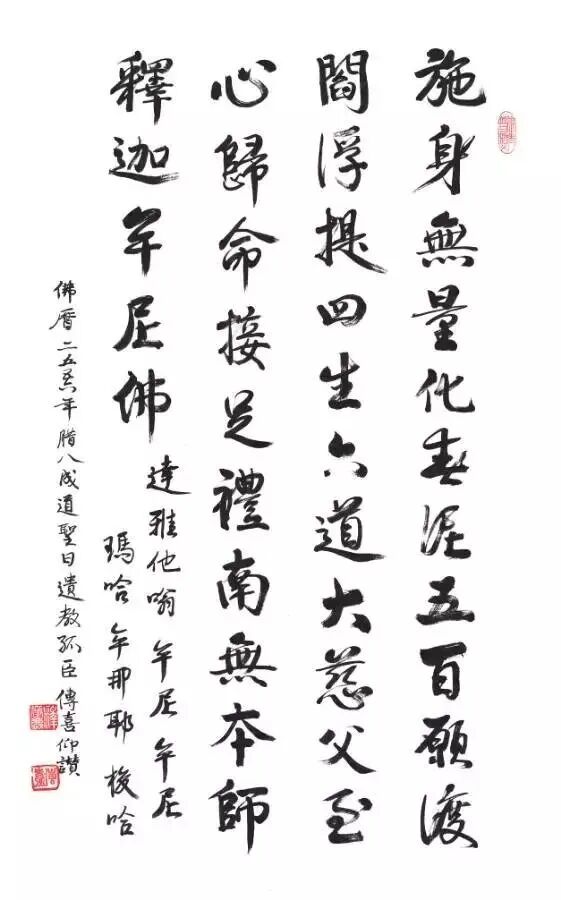 施身無量化春泥五百願渡
閻浮提四生六道大慈父至
心歸命接足禮南無本師
釋迦牟尼佛
達雅他嗡 牟尼牟尼
瑪哈牟那耶 梭哈
佛曆二五五六年腊八成道聖日遺教孤臣傳喜仰讚